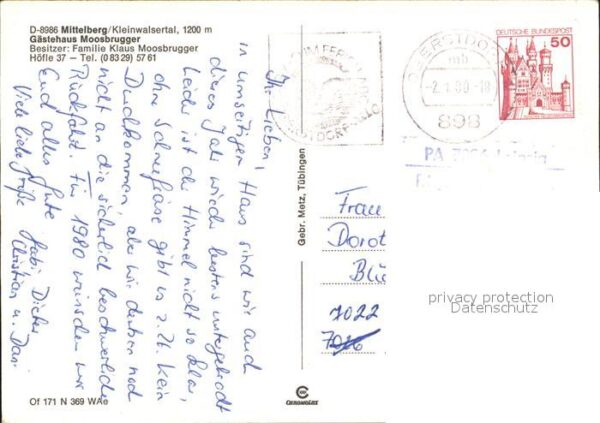 D-8986 Mittelberg/Kleinwalsertal, 1200 m
Gästehaus Moosbrugger
Besitzer: Familie Klaus Moosbrugger
Höfle 37 – Tel. (0 83 29) 57 61
Ihr Lieben,
in umseitigem Haus sind wir auch
dieses Jahr wieder bestens untergebracht
Leider ist der Himmel nicht so blau,
ohne Schneefräse gibt es z. Zt. kein
Durchkommen, aber wir denken noch
nicht an die sicherlich beschwerliche
Rückfahrt. Für 1980 wünschen wir
Euch alles Gute
Viele liebe Grüße Gabi, Dieter
Christian u.
Of 171 N 369 WAe
Gebr. Metz, Tübingen
CHROMOLUX
OBERSTDORF
mb
-2.1.80-18
898
DEUTSCHE BUNDESPOST
50
PA
Frau
Dorot
Blü
7022
7026
privacy protection
Datenschutz